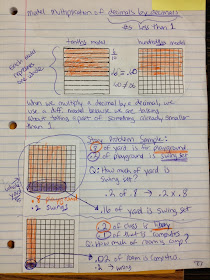 Model Multiplication of decimals by decimals
↳ less than 1
tenths model
hundredths model
each model
represents
one whole
1/10
.6 = .60
When we multiply a decimal by a decimal, we
use a different model because we are
talking
about taking a part of something already smaller
than 1.
Story Problem Sample:
.8 of yard is for playground
.2 of playground is swing set
Q: How much of yard is
swing set?
.2 of .8 → .2 x .8
whole
yard
.8
.2 swing
.16 of yard is swing set
.2 of class is library
.1 of that is computers
Q: How much of room is comp?
.02 of room is computers
.2 →